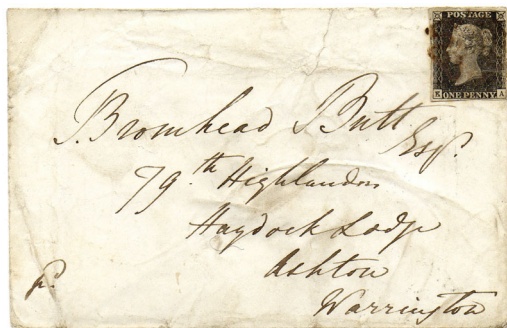 POSTAGE
K A
ONE PENNY
T. Bromhead Butt
Esq.
79.th Highlanders
Haydock Lodge
Ashton
Warrington